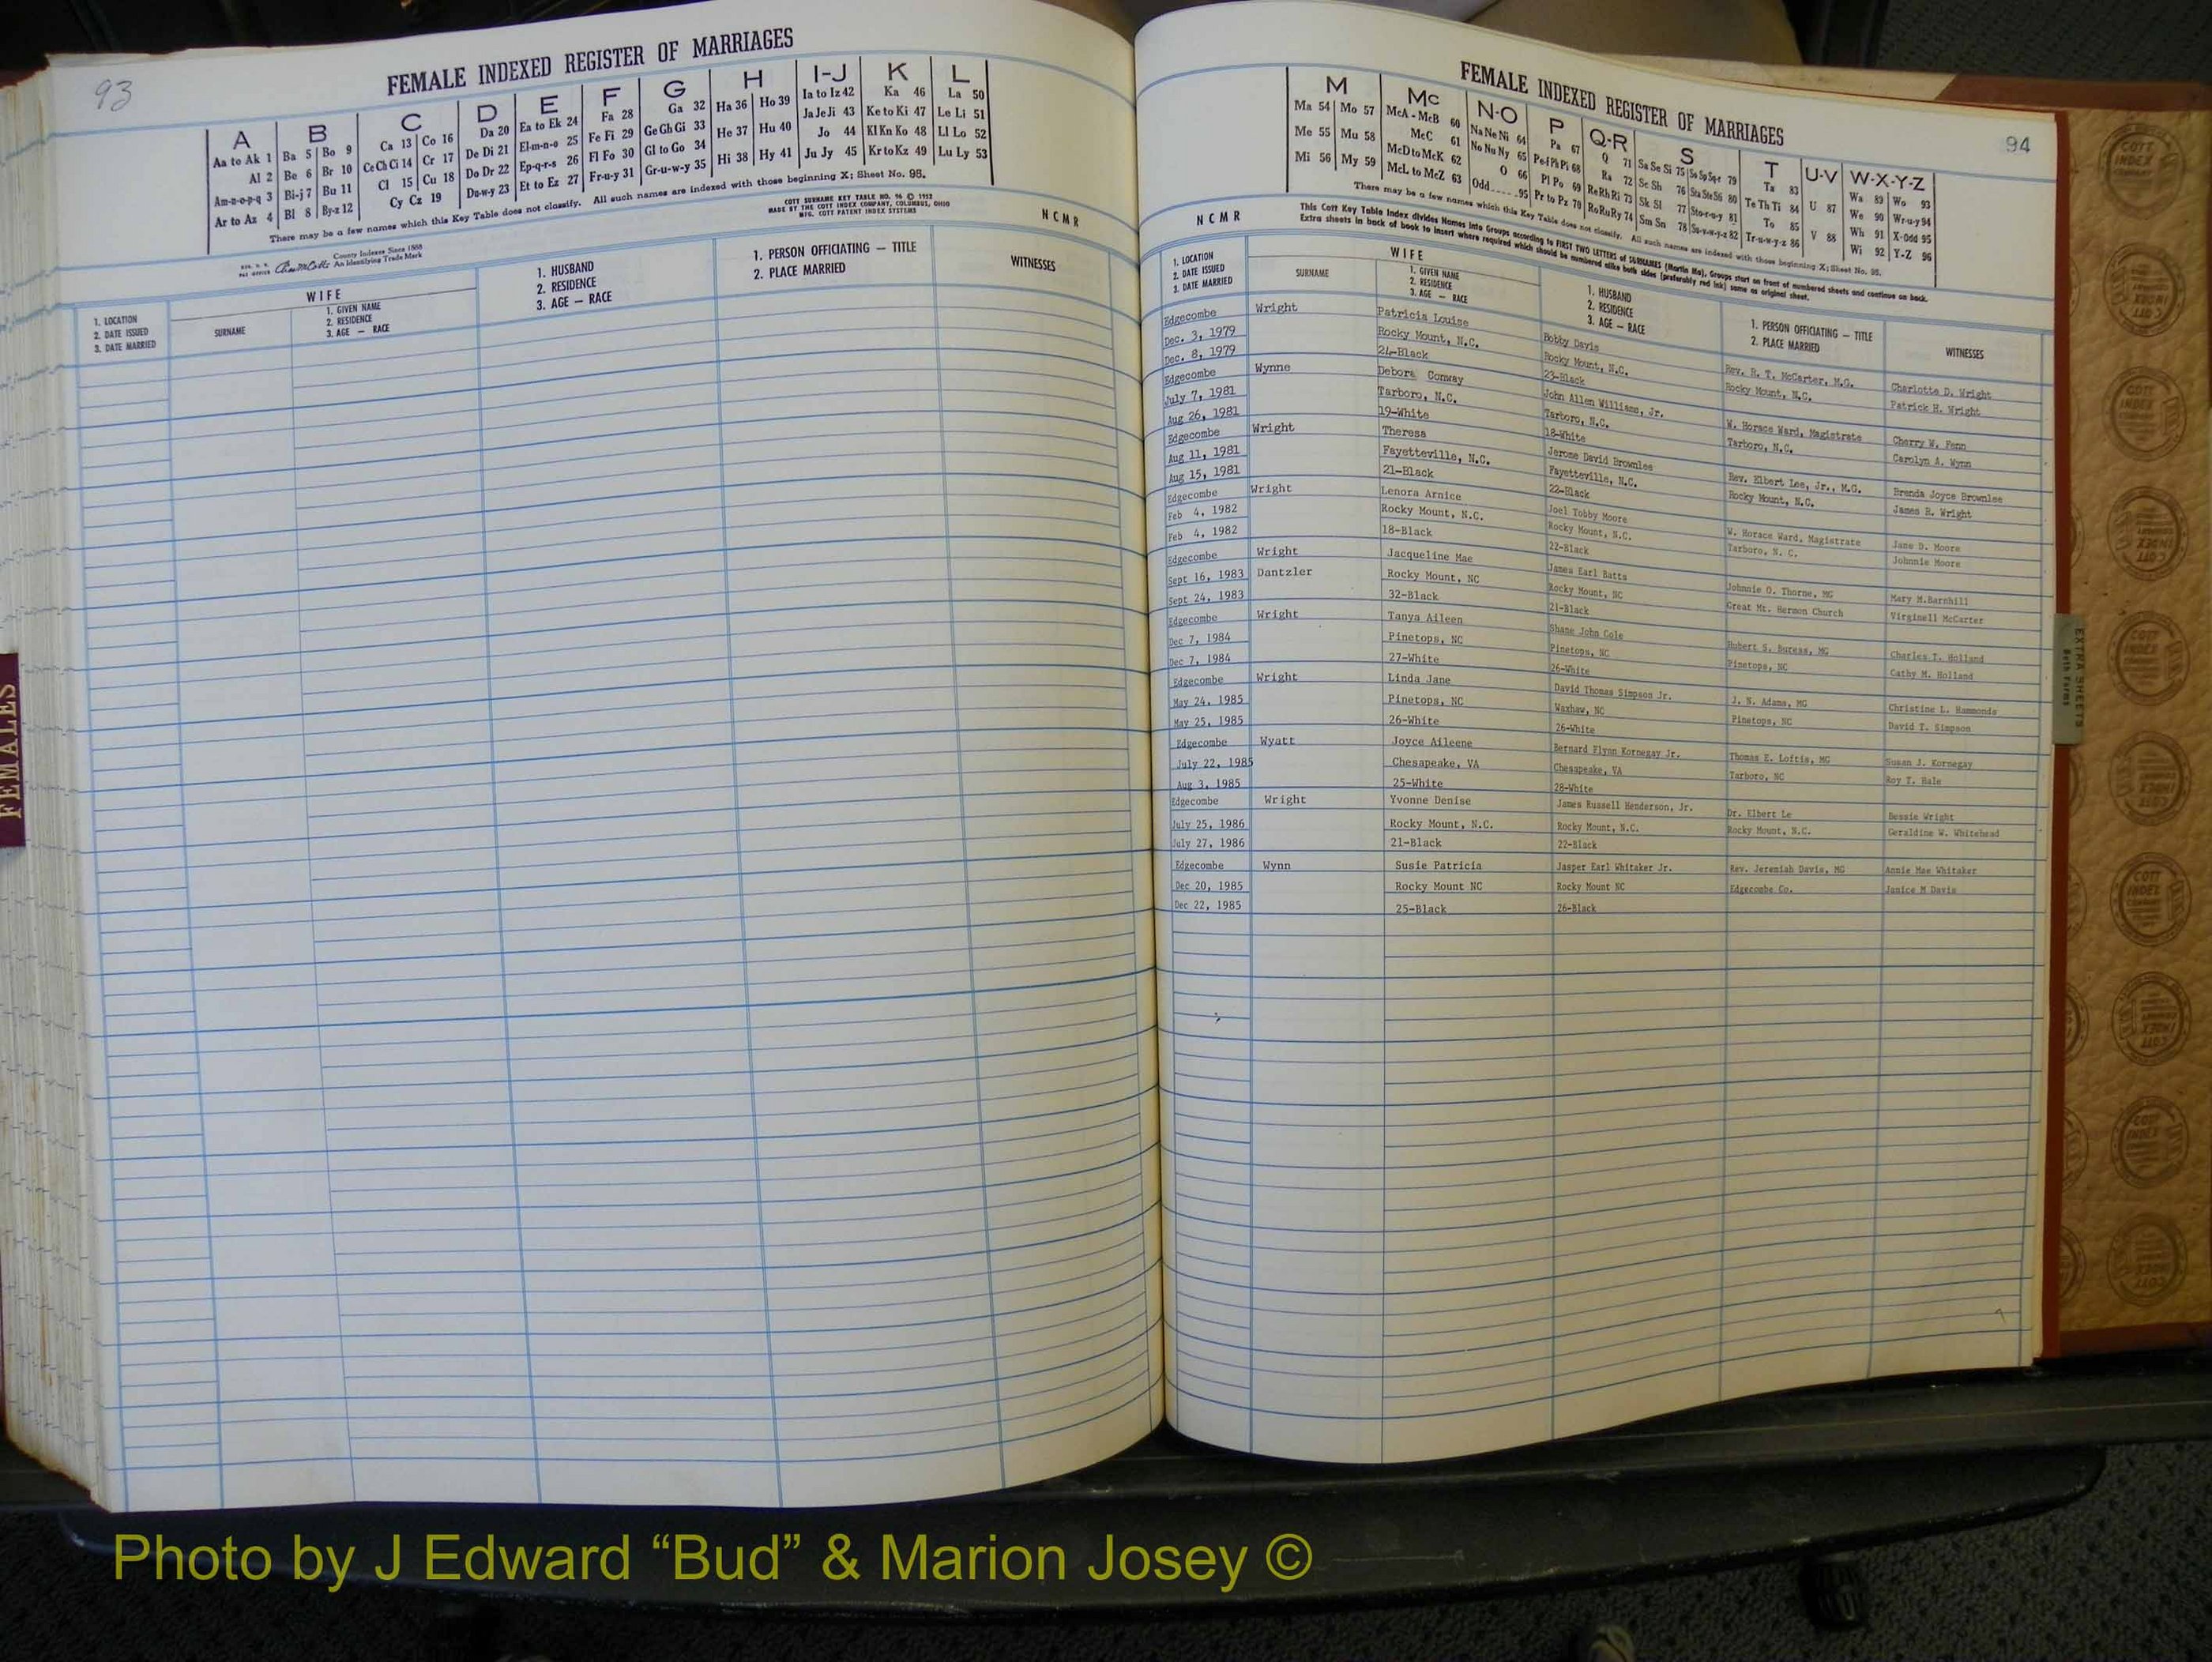 93
FEMALE INDEXED REGISTER OF MARRIAGES
A B C D E F G H I-J K L
Aa to Ak 1 Ba 5 Bo 9 Ca 13 Co 16 Da 20 Ea to Ek 24 Fa 28 Ga 32 Ha 36 Ho 39 Ia to Iz 42 Ka 46 La 50
Al 2 Be 6 Br 10 Ce Ch Ci 14 Cr 17 De Di 21 El-m-n-o 25 Fe Fi 29 Ge Gh Gi 33 He 37 Hu 40 Ja Je Ji 43 Ke to Ki 47 Le Li 51
Am-n-o-p-q 3 Bi-j 7 Bu 11 Cl 15 Cu 18 Do Dr 22 Ep-q-r-s 26 Fl Fo 30 Gl to Go 34 Hi 38 Hy 41 Jo 44 Kl Kn Ko 48 Ll Lo 52
Ar to Az 4 Bl 8 By-z 12 Cy Cz 19 Du-w-y 23 Et to Ez 27 Fr-u-y 31 Gr-u-w-y 35 Ju Jy 45 Kr to Kz 49 Lu Ly 53
There may be a few names which this Key Table does not classify. All such names are indexed with those beginning X; Sheet No. 95.
COTT SURNAME KEY TABLE NO. 96 © 1952
MADE BY THE COTT INDEX COMPANY, COLUMBUS, OHIO
MFG. COTT PATENT INDEX SYSTEMS
N C M R
County Indexes Since 1888
An Identifying Trade Mark
1. LOCATION
2. DATE ISSUED
3. DATE MARRIED
WIFE
SURNAME
1. GIVEN NAME
2. RESIDENCE
3. AGE — RACE
1. HUSBAND
2. RESIDENCE
3. AGE — RACE
1. PERSON OFFICIATING — TITLE
2. PLACE MARRIED
WITNESSES
FEMALES
FEMALE INDEXED REGISTER OF MARRIAGES
94
M Mc N-O P Q-R S T U-V W-X-Y-Z
Ma 54 Mo 57 McA - McB 60 Na Ne Ni 64 Pa 67 Q 71 Sa Se Si 75 So Sp Sq-r 79 Ta 83 U 87 Wa 89 Wo 93
Me 55 Mu 58 McC 61 No Nu Ny 65 Pe-f Ph Pi 68 Ra 72 Sc Sh 76 Sta Ste Sti 80 Te Th Ti 84 V 88 We 90 Wr-u-y 94
Mi 56 My 59 McD to McK 62 O 66 Pl Po 69 Re Rh Ri 73 Sk Sl 77 Sto-r-u-y 81 To 85 Wh 91 X-Odd 95
McL to McZ 63 Odd.....95 Pr to Pz 70 Ro Ru Ry 74 Sm Sn 78 Su-v-w-y-z 82 Tr-u-w-y-z 86 Wi 92 Y-Z 96
There may be a few names which this Key Table does not classify. All such names are indexed with those beginning X; Sheet No. 95.
N C M R
This Cott Key Table Index divides Names into Groups according to FIRST TWO LETTERS of SURNAMES (Martin Ma). Groups start on front of numbered sheets and continue on back.
Extra sheets in back of book to insert where required which should be numbered alike both sides (preferably red ink) same as original sheet.
1. LOCATION
2. DATE ISSUED
3. DATE MARRIED
WIFE
SURNAME
1. GIVEN NAME
2. RESIDENCE
3. AGE — RACE
1. HUSBAND
2. RESIDENCE
3. AGE — RACE
1. PERSON OFFICIATING — TITLE
2. PLACE MARRIED
WITNESSES
Edgecombe Wright Patricia Louise Bobby Davis Rev. R. T. McCarter, M.G. Charlotte D. Wright
Dec. 3, 1979 Rocky Mount, N.C. Rocky Mount, N.C. Rocky Mount, N.C. Patrick H. Wright
Dec. 8, 1979 24-Black 23-Black
Edgecombe Wynne Debora Conway John Allen Williams, Jr. W. Horace Ward, Magistrate Cherry W. Fenn
July 7, 1981 Tarboro, N.C. Tarboro, N.C. Tarboro, N.C. Carolyn A. Wynn
Aug 26, 1981 19-White 18-White
Edgecombe Wright Theresa Jerome David Brownlee Rev. Elbert Lee, Jr., M.G. Brenda Joyce Brownlee
Aug 11, 1981 Fayetteville, N.C. Fayetteville, N.C. Rocky Mount, N.C. James R. Wright
Aug 15, 1981 21-Black 22-Black
Edgecombe Wright Lenora Arnice Joel Tobby Moore W. Horace Ward, Magistrate Jane D. Moore
Feb 4, 1982 Rocky Mount, N.C. Rocky Mount, N.C. Tarboro, N. C. Johnnie Moore
Feb 4, 1982 18-Black 22-Black
Edgecombe Wright Jacqueline Mae James Earl Batts Johnnie O. Thorne, MG Mary M.Barnhill
Sept 16, 1983 Dantzler Rocky Mount, NC Rocky Mount, NC Great Mt. Hermon Church Virginell McCarter
Sept 24, 1983 32-Black 21-Black
Edgecombe Wright Tanya Aileen Shane John Cole Hubert S. Buress, MG Charles T. Holland
Dec 7, 1984 Pinetops, NC Pinetops, NC Pinetops, NC Cathy M. Holland
Dec 7, 1984 27-White 26-White
Edgecombe Wright Linda Jane David Thomas Simpson Jr. J. N. Adams, MG Christine L. Hammonds
May 24, 1985 Pinetops, NC Waxhaw, NC Pinetops, NC David T. Simpson
May 25, 1985 26-White 26-White
Edgecombe Wyatt Joyce Aileene Bernard Flynn Kornegay Jr. Thomas E. Loftis, MG Susan J. Kornegay
July 22, 1985 Chesapeake, VA Chesapeake, VA Tarboro, NC Roy T. Hale
Aug 3, 1985 25-White 28-White
Edgecombe Wright Yvonne Denise James Russell Henderson, Jr. Dr. Elbert Le Bessie Wright
July 25, 1986 Rocky Mount, N.C. Rocky Mount, N.C. Rocky Mount, N.C. Geraldine W. Whitehead
July 27, 1986 21-Black 22-Black
Edgecombe Wynn Susie Patricia Jasper Earl Whitaker Jr. Rev. Jeremiah Davis, MG Annie Mae Whitaker
Dec 20, 1985 Rocky Mount NC Rocky Mount NC Edgecombe Co. Janice M Davis
Dec 22, 1985 25-Black 26-Black
EXTRA SHEETS
Both Forms
Photo by J Edward “Bud” & Marion Josey ©